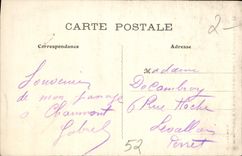 CARTE POSTALE
Correspondance
Adresse
2-
Madame
Souvenir
de mon passage
à Chaumont
Gabriel
6 Rue Hoche
Levallois
Perret
52